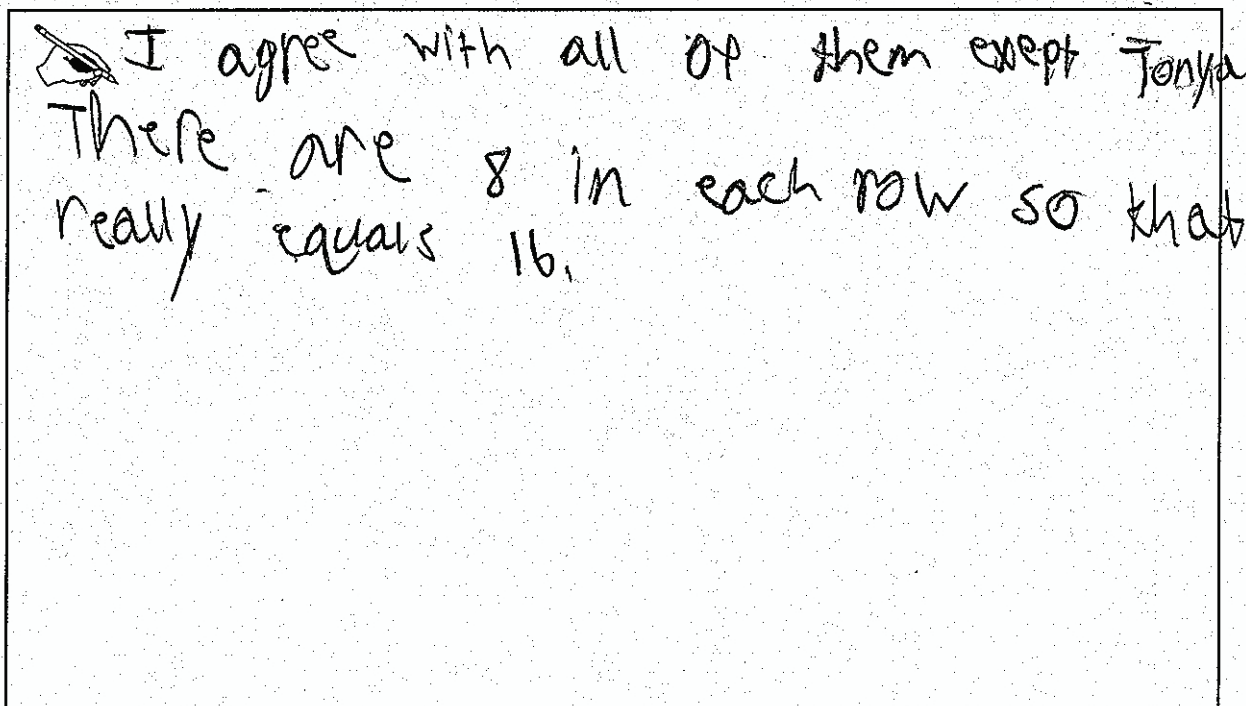 I agree with all of them exept Tonya
There are 8 in each row so that
really equals 16.